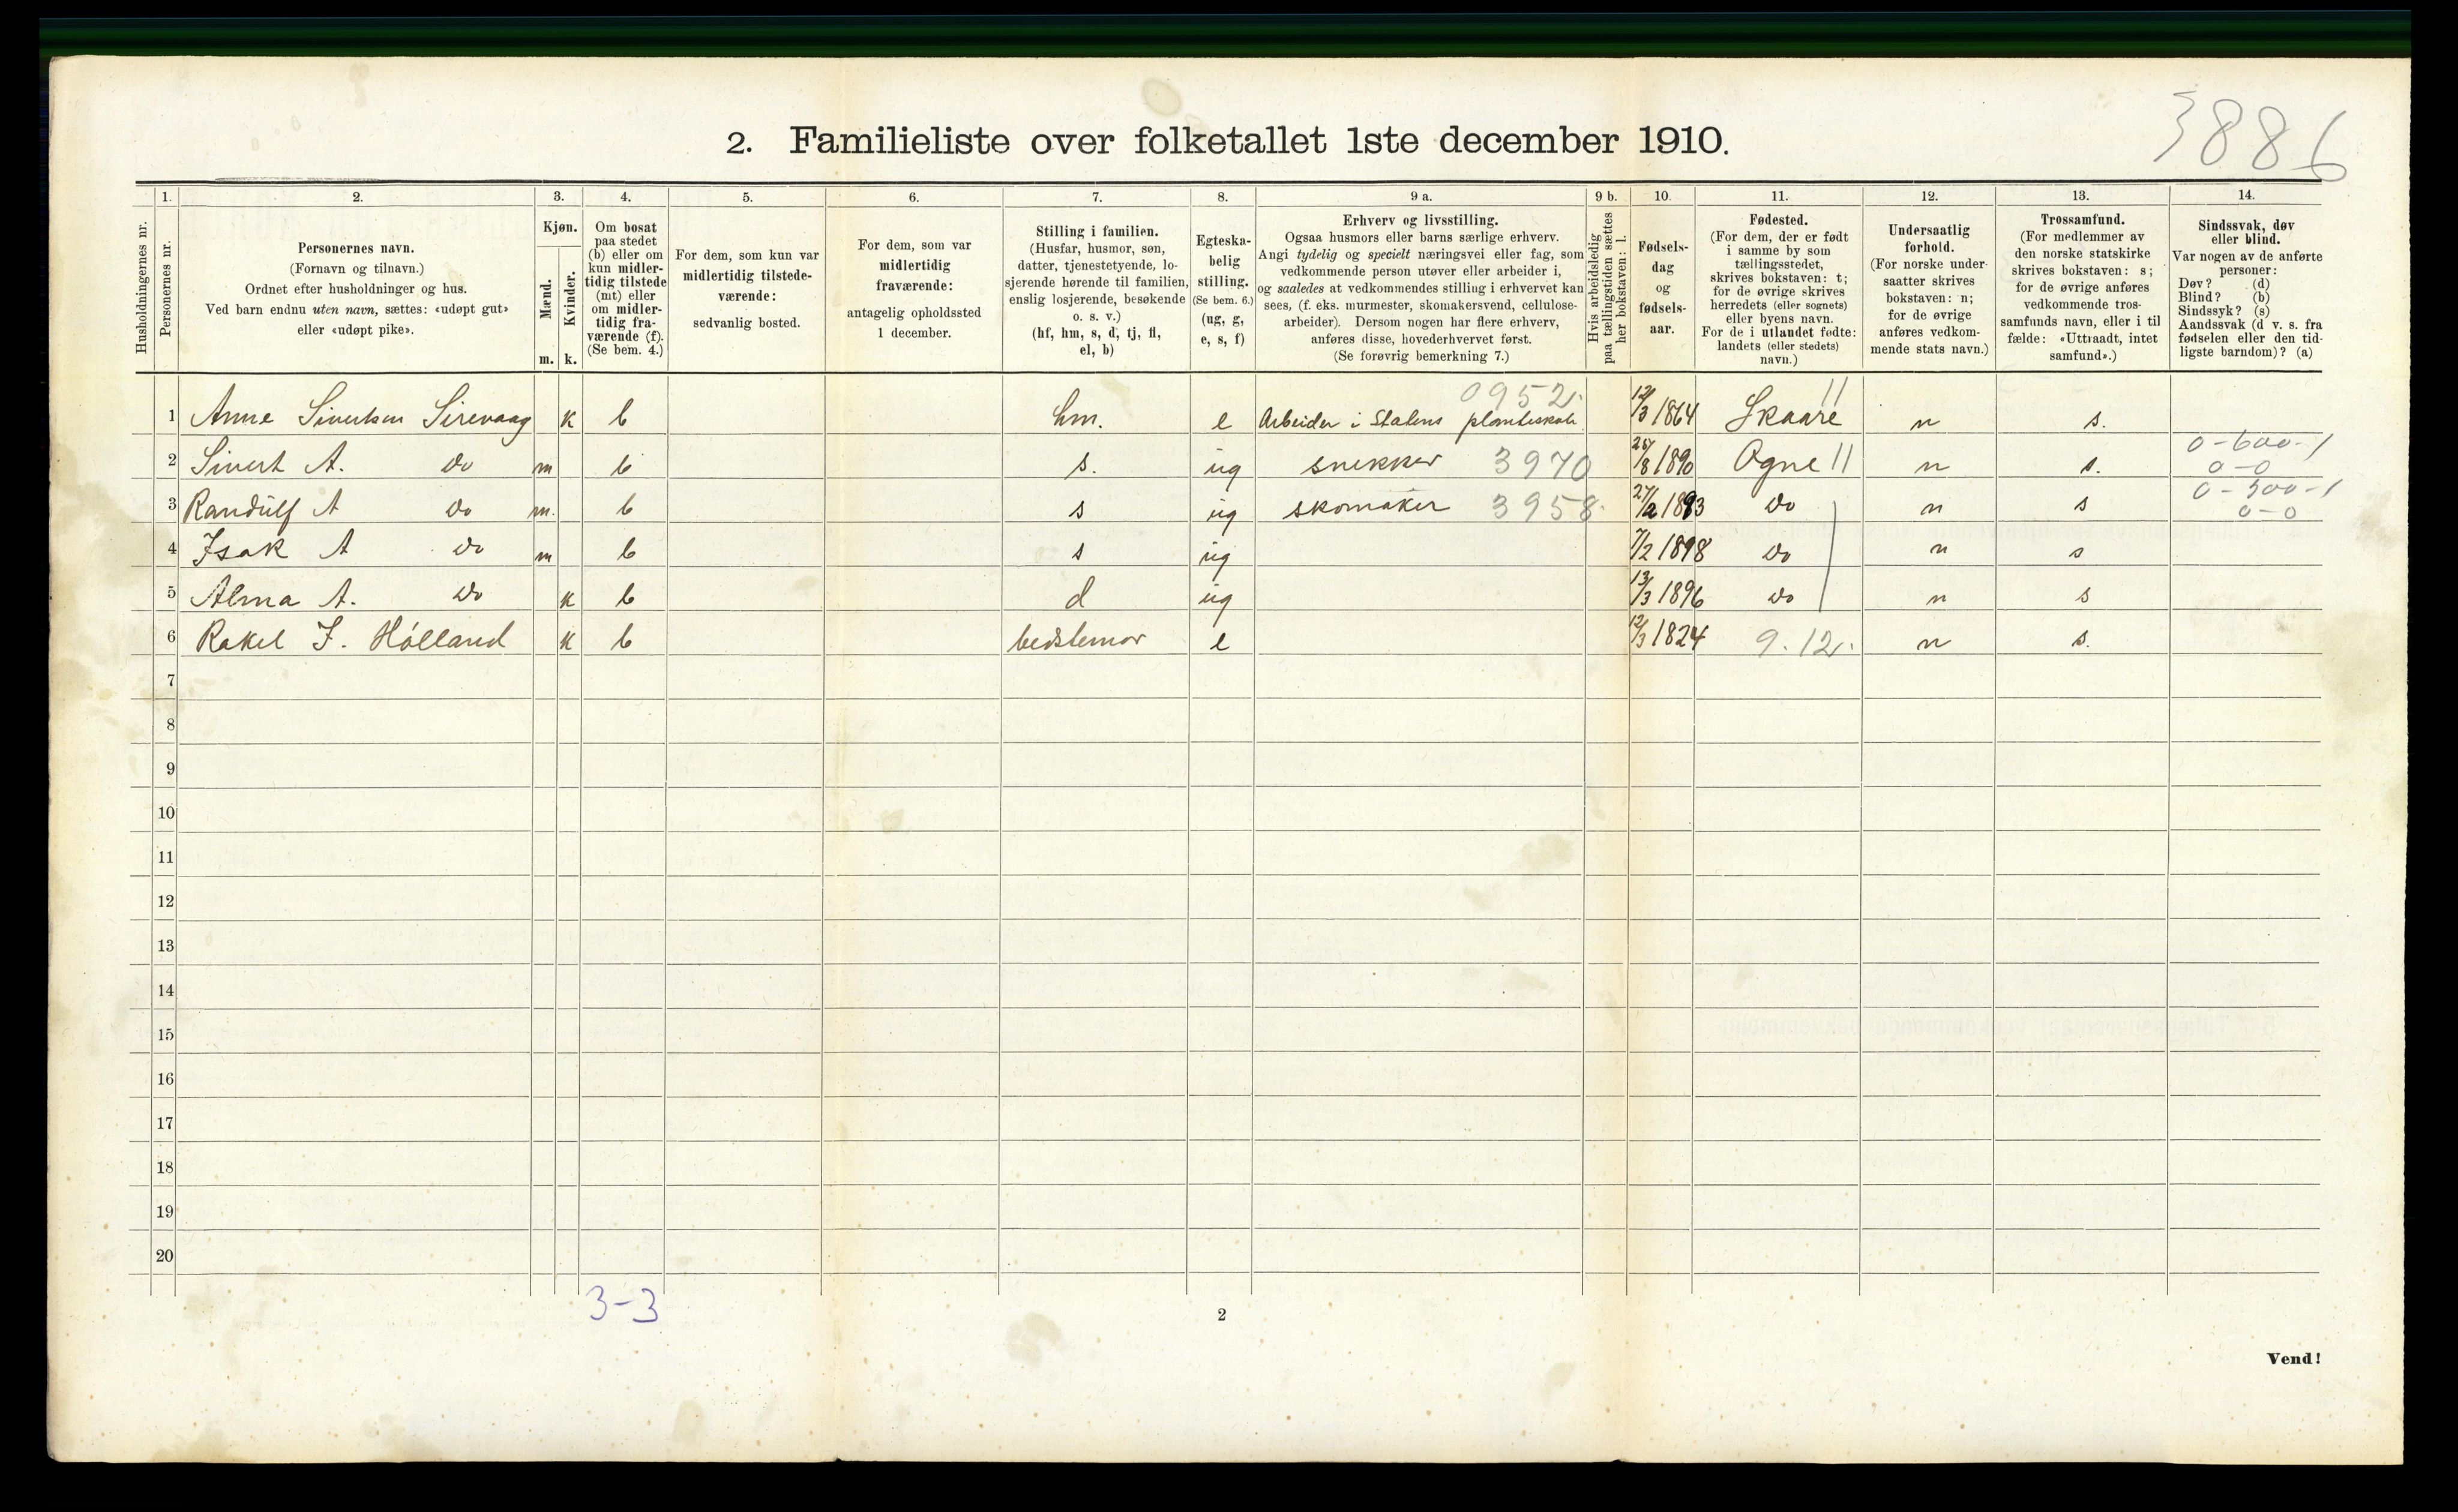 3886
2. Familieliste over folketallet 1ste december 1910.
Husholdningernes nr.
1.
Personernes nr.
2.
Personernes navn.
(Fornavn og tilnavn.)
Ordnet efter husholdninger og hus.
Ved barn endnu uten navn, sættes: «udøpt gut»
eller «udøpt pike».
3.
Kjøn.
Mænd. Kvinder.
m. k.
4.
Om bosat
paa stedet
(b) eller om
kun midler-
tidig tilstede
(mt) eller
om midler-
tidig fra-
værende (f).
(Se bem. 4.)
5.
For dem, som kun var
midlertidig tilstede-
værende:
sedvanlig bosted.
6.
For dem, som var
midlertidig
fraværende:
antagelig opholdssted
1 december.
7.
Stilling i familien.
(Husfar, husmor, søn,
datter, tjenestetyende, lo-
sjerende hørende til familien,
enslig losjerende, besøkende
o. s. v.)
(hf, hm, s, d, tj, fl,
el, b)
8.
Egteska-
belig
stilling.
(Se bem. 6.)
(ug, g,
e, s, f)
9 a.
Erhverv og livsstilling.
Ogsaa husmors eller barns særlige erhverv.
Angi tydelig og specielt næringsvei eller fag, som
vedkommende person utøver eller arbeider i,
og saaledes at vedkommendes stilling i erhvervet kan
sees, (f. eks. murmester, skomakersvend, cellulose-
arbeider). Dersom nogen har flere erhverv,
anføres disse, hovederhvervet først.
(Se forøvrig bemerkning 7.)
9 b.
Hvis arbeidsledig
paa tællingstiden sættes
her bokstaven: l.
10.
Fødsels-
dag
og
fødsels-
aar.
11.
Fødested.
(For dem, der er født
i samme by som
tællingsstedet,
skrives bokstaven: t;
for de øvrige skrives
herredets (eller sognets)
eller byens navn.
For de i utlandet fødte:
landets (eller stedets)
navn.)
12.
Undersaatlig
forhold.
(For norske under-
saatter skrives
bokstaven: n;
for de øvrige
anføres vedkom-
mende stats navn.)
13.
Trossamfund.
(For medlemmer av
den norske statskirke
skrives bokstaven: s;
for de øvrige anføres
vedkommende tros-
samfunds navn, eller i til
fælde: «Uttraadt, intet
samfund».)
14.
Sindssvak, døv
eller blind.
Var nogen av de anførte
personer:
Døv? (d)
Blind? (b)
Sindssyk? (s)
Aandssvak (d v. s. fra
fødselen eller den tid-
ligste barndom)? (a)
0952. 11
1 Anne Sivertsen Sirevaag k b hm. e Arbeider i Statens planteskole 12/3 1864 Skaare n s.
0-600-1
2 Sivert A. do m b s. ug snekker 3970 1890 Ogne 11 n s. 0-0
0-300-1
3 Randulf A do m. b s ug skomaker 3958. 27/2 1893 do n s 0-0
4 Isak A do m b s ug 7/2 1898 do n s
5 Alma A. do k b d ug 13/3 1896 do n s
6 Rakel I. Hólland k b bedstemor e 12/3 1824 9.12. n s.
7
8
9
10
11
12
13
14
15
16
17
18
19
20
3-3
2
Vend!